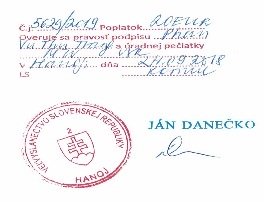 Č.j. 5629/2019 Poplatok 20EUR
Overuje sa pravosť podpisu Phan
Vu Thu a úradnej pečiatky
v Hanoj, dňa 24.09.2018
LS
VEĽVYSLANECTVO SLOVENSKEJ REPUBLIKY
HANOJ
JÁN DANEČKO